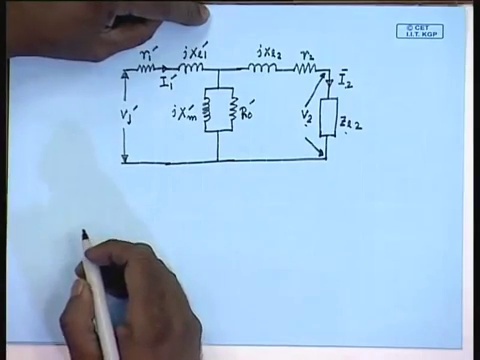 © CET
I.I.T. KGP
r₁′ jXℓ₁′ jXℓ₂ r₂
I₁′ Ī₂
V₁′ jX′m R₀′ V₂ Zℓ₂